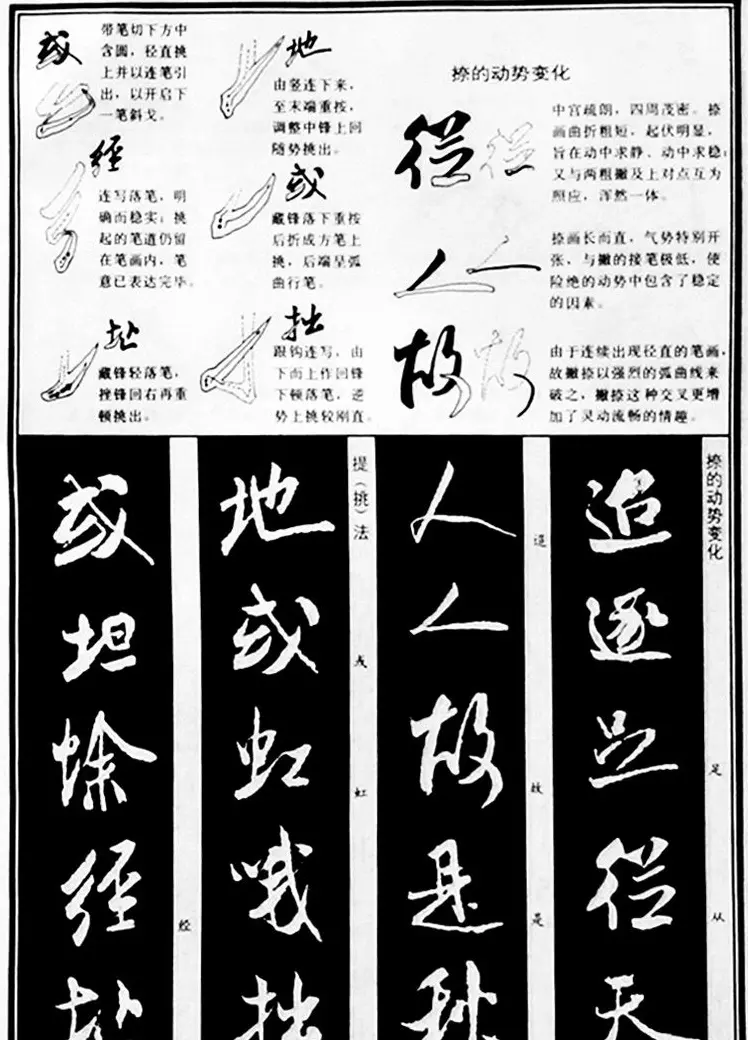 或
带笔切下方中
含圆，径直挑
上并以连笔引
出，以开启下
一笔斜戈。
经
连写落笔，明
确而稳实；挑
起的笔道仍留
在笔画内，笔
意已表达完毕。
藏锋轻落笔，
挫锋回右再重
顿挑出。
地
由竖连下来，
至末端重按，
调整中锋上回
随势挑出。
或
藏锋落下重按
后折成方笔上
挑，后端呈弧
曲行笔。
拙
跟钩连写，由
下而上作回锋
下顿落笔，逆
势上挑较刚直。
捺的动势变化
從從
中宫疏朗，四周茂密。捺
画曲折粗短，起伏明显，
旨在动中求静、动中求稳；
又与两根撇及上对点互为
照应，浑然一体。
人人
捺画长而直，气势特别开
张，与撇的接笔极低，使
险绝的动势中包含了稳定
的因素。
故故
由于连续出现径直的笔画，
故撇捺以强烈的弧曲线来
破之，撇捺这种交叉更增
加了灵动流畅的情趣。
捺的动势变化
足
从
追
逐
足
從
天
故
是
人
人
故
是
秋
提（挑）法
或
虹
地
或
虹
哦
拙
经
或
坦
經